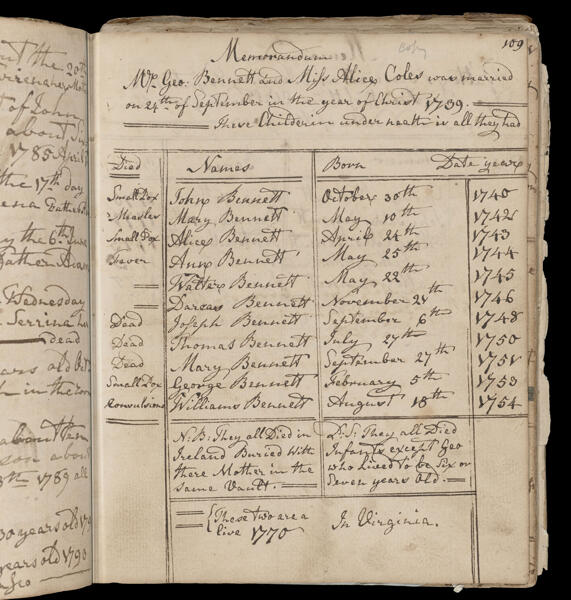 out the 20th
of John
about Six
1785 April
the 17th day
ena Bathe
y the 6th June
Wednesday
Serrina
dead
ears old Oct
h in the
about ten
son about
8th 1789 all
30 years old 179
years old 1790
Geo
Copy 109
Memorandum
Mr. Geo. Bennett and Miss Alice Coles was married
on 24th of September in the year of Christ 1739.
These Childerin under neath is all they had
Died Names Born Date years
Small Pox John Bennett October 30th 1740
Measles Mary Bennett May 10th 1742
Small Pox Alice Bennett April 24th 1743
Fever Ann Bennett May 25th 1744
Walter Bennett May 22th 1745
Dareas Bennett November 24th 1746
Dead Joseph Bennett September 6th 1748
Dead Thomas Bennett July 27th 1750
Dead Mary Bennett September 27th 1751
Small Pox George Bennett February 5th 1753
Convulsions Williams Bennett August 18th 1754
N.B. They all Died in
Ireland Buried With
there Mother in the
same Vault.
P.S. They all Died
Infants except Geo
who Lived to be Six or
Seven years Old.
These two are a
live 1770
In Virginia.